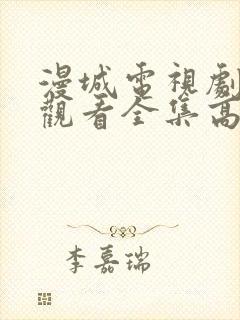 漫城電視劇
觀看全集高
李嘉瑞